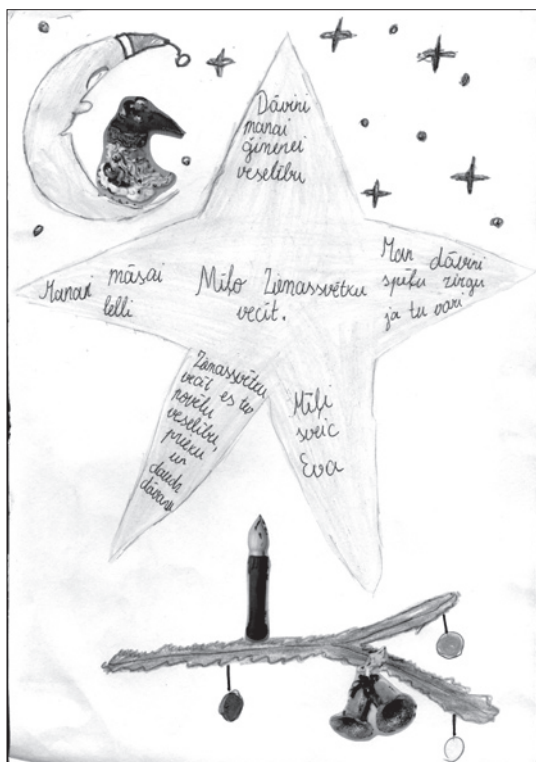 Dāvini
manai
ģimenei
veselību
Mīļo Ziemassvētku
vecīt.
Man dāvini
spēļu zirgu
ja tu vari
Manai māsai
lelli
Ziemassvētku
vecīt es tev
novēlu
veselību,
prieku
un
daudz
dāvanu
Mīļi
sveic
Eva